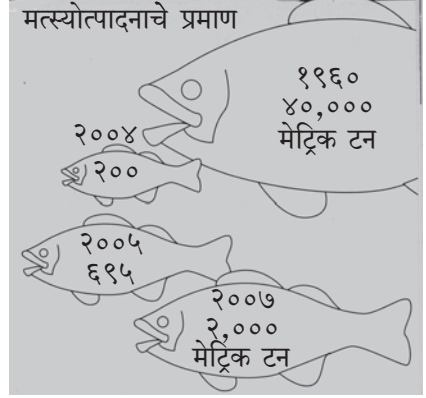 मत्स्योत्पादनाचे प्रमाण
१९६०
४०,०००
मेट्रिक टन
२००४
२००
२००५
६९५
२००७
२,०००
मेट्रिक टन